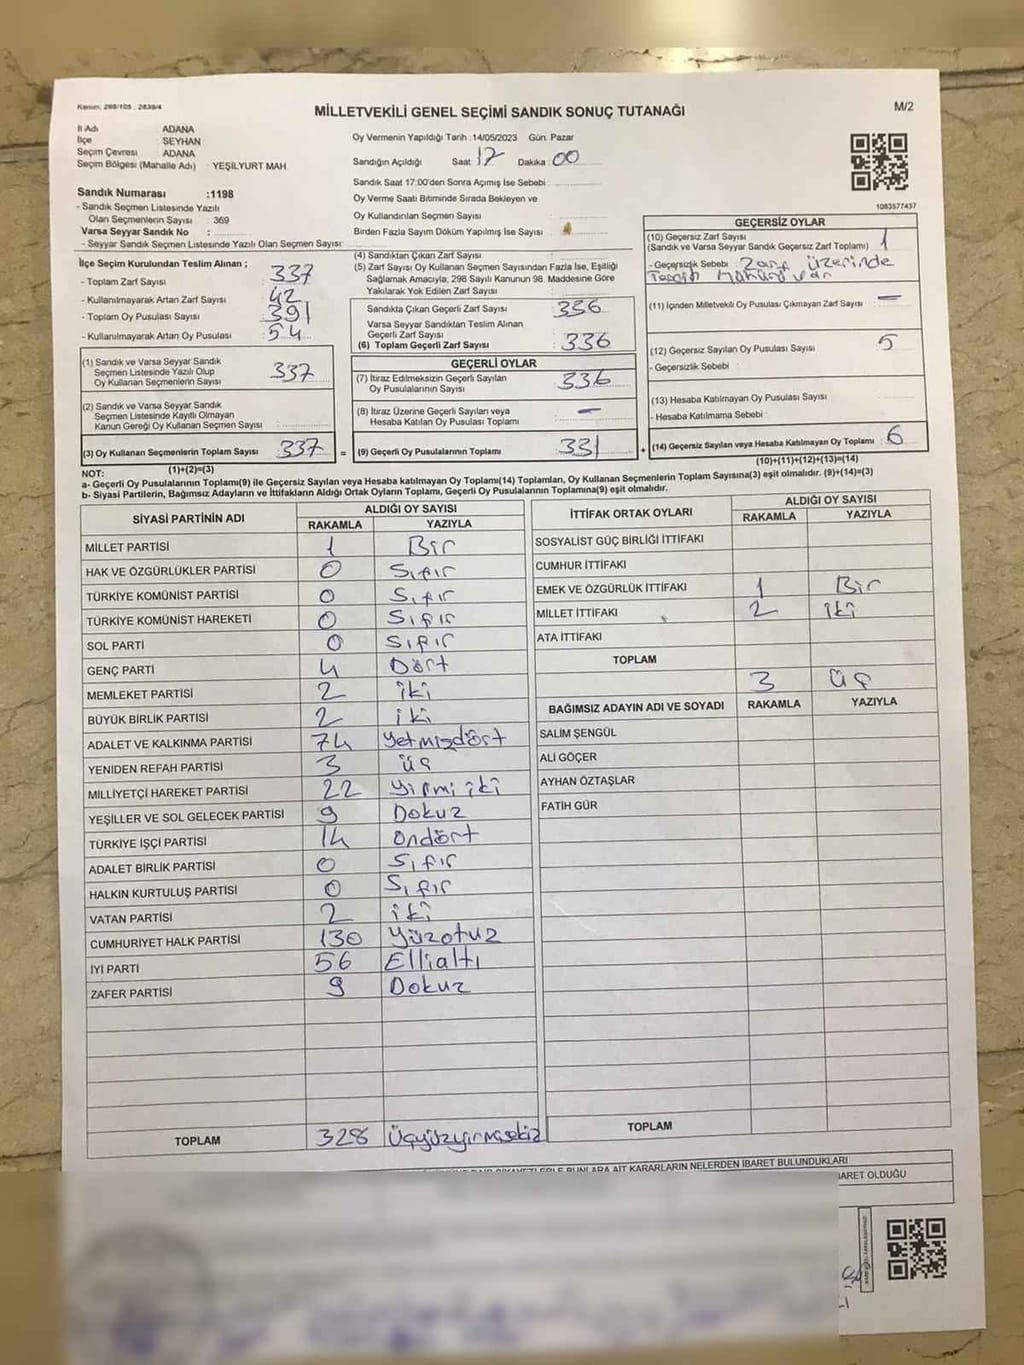 Kanun, 298/105 , 2839/4
M/2
MİLLETVEKİLİ GENEL SEÇİMİ SANDIK SONUÇ TUTANAĞI
İl Adı ADANA
İlçe SEYHAN
Seçim Çevresi ADANA
Seçim Bölgesi (Mahalle Adı) : YEŞİLYURT MAH
Sandık Numarası :1198
- Sandık Seçmen Listesinde Yazılı
Olan Seçmenlerin Sayısı : 369
Varsa Seyyar Sandık No :
- Seyyar Sandık Seçmen Listesinde Yazılı Olan Seçmen Sayısı:
Oy Vermenin Yapıldığı Tarih :14/05/2023 Gün: Pazar
Sandığın Açıldığı Saat 17 Dakika 00
Sandık Saat 17:00'den Sonra Açımış İse Sebebi :
Oy Verme Saati Bitiminde Sırada Bekleyen ve
Oy Kullandırılan Seçmen Sayısı :
Birden Fazla Sayım Döküm Yapılmış İse Sayısı :
1083577437
İlçe Seçim Kurulundan Teslim Alınan ;
- Toplam Zarf Sayısı : 337
- Kullanılmayarak Artan Zarf Sayısı : 42
- Toplam Oy Pusulası Sayısı : 391
- Kullanılmayarak Artan Oy Pusulası : 54
(1) Sandık ve Varsa Seyyar Sandık
Seçmen Listesinde Yazılı Olup
Oy Kullanan Seçmenlerin Sayısı : 337
(2) Sandık ve Varsa Seyyar Sandık
Seçmen Listesinde Kayıtlı Olmayan
Kanun Gereği Oy Kullanan Seçmen Sayısı :
(3) Oy Kullanan Seçmenlerin Toplam Sayısı : 337 =
(4) Sandıktan Çıkan Zarf Sayısı :
(5) Zarf Sayısı Oy Kullanan Seçmen Sayısından Fazla İse, Eşitliği
Sağlamak Amacıyla, 298 Sayılı Kanunun 98. Maddesine Göre
Yakılarak Yok Edilen Zarf Sayısı :
Sandıkta Çıkan Geçerli Zarf Sayısı : 336
Varsa Seyyar Sandıktan Teslim Alınan
Geçerli Zarf Sayısı :
(6) Toplam Geçerli Zarf Sayısı : 336
GEÇERLİ OYLAR
(7) İtiraz Edilmeksizin Geçerli Sayılan
Oy Pusulalarının Sayısı : 336
(8) İtiraz Üzerine Geçerli Sayılan veya
Hesaba Katılan Oy Pusulası Toplamı : -
(9) Geçerli Oy Pusulalarının Toplamı : 331 +
GEÇERSİZ OYLAR
(10) Geçersiz Zarf Sayısı : 1
(Sandık ve Varsa Seyyar Sandık Geçersiz Zarf Toplamı)
- Geçersizlik Sebebi : Zarf üzerinde
Tercih Mührü var
(11) İçinden Milletvekili Oy Pusulası Çıkmayan Zarf Sayısı : -
(12) Geçersiz Sayılan Oy Pusulası Sayısı : 5
- Geçersizlik Sebebi :
(13) Hesaba Katılmayan Oy Pusulası Sayısı :
- Hesaba Katılmama Sebebi :
(14) Geçersiz Sayılan veya Hesaba Katılmayan Oy Toplamı : 6
(10)+(11)+(12)+(13)=(14)
NOT: (1)+(2)=(3)
a- Geçerli Oy Pusulasının Toplamı(9) ile Geçersiz sayılan veya Hesaba katılmayan Oy Toplamı(14) Toplamları, Oy Kullanan Seçmenlerin Toplam Sayısına(3) eşit olmalıdır. (9)+(14)=(3)
b- Siyasi Partilerin, Bağımsız Adayların ve İttifakların Aldığı Ortak Oyların Toplamı, Geçerli Oy Pusulalarının Toplamına(9) eşit olmalıdır.
SİYASİ PARTİNİN ADI ALDIĞI OY SAYISI
RAKAMLA YAZIYLA
MİLLET PARTİSİ 1 Bir
HAK VE ÖZGÜRLÜKLER PARTİSİ 0 Sıfır
TÜRKİYE KOMÜNİST PARTİSİ 0 Sıfır
TÜRKİYE KOMÜNİST HAREKETİ 0 Sıfır
SOL PARTİ 0 Sıfır
GENÇ PARTİ 4 Dört
MEMLEKET PARTİSİ 2 iki
BÜYÜK BİRLİK PARTİSİ 2 iki
ADALET VE KALKINMA PARTİSİ 74 Yetmişdört
YENİDEN REFAH PARTİSİ 3 üç
MİLLİYETÇİ HAREKET PARTİSİ 22 Yirmi iki
YEŞİLLER VE SOL GELECEK PARTİSİ 9 Dokuz
TÜRKİYE İŞÇİ PARTİSİ 14 Ondört
ADALET BİRLİK PARTİSİ 0 Sıfır
HALKIN KURTULUŞ PARTİSİ 0 Sıfır
VATAN PARTİSİ 2 iki
CUMHURİYET HALK PARTİSİ 130 Yüzotuz
İYİ PARTİ 56 Ellialtı
ZAFER PARTİSİ 9 Dokuz
TOPLAM 328 Üçyüzyirmisekiz
İTTİFAK ORTAK OYLARI ALDIĞI OY SAYISI
RAKAMLA YAZIYLA
SOSYALİST GÜÇ BİRLİĞİ İTTİFAKI
CUMHUR İTTİFAKI
EMEK VE ÖZGÜRLÜK İTTİFAKI 1 Bir
MİLLET İTTİFAKI 2 iki
ATA İTTİFAKI
TOPLAM 3 üç
BAĞIMSIZ ADAYIN ADI VE SOYADI RAKAMLA YAZIYLA
SALİM ŞENGÜL
ALİ GÖÇER
AYHAN ÖZTAŞLAR
FATİH GÜR
TOPLAM
BUNLARA AİT KARARLARIN NELERDEN İBARET BULUNDUKLARI
BARET OLDUĞU